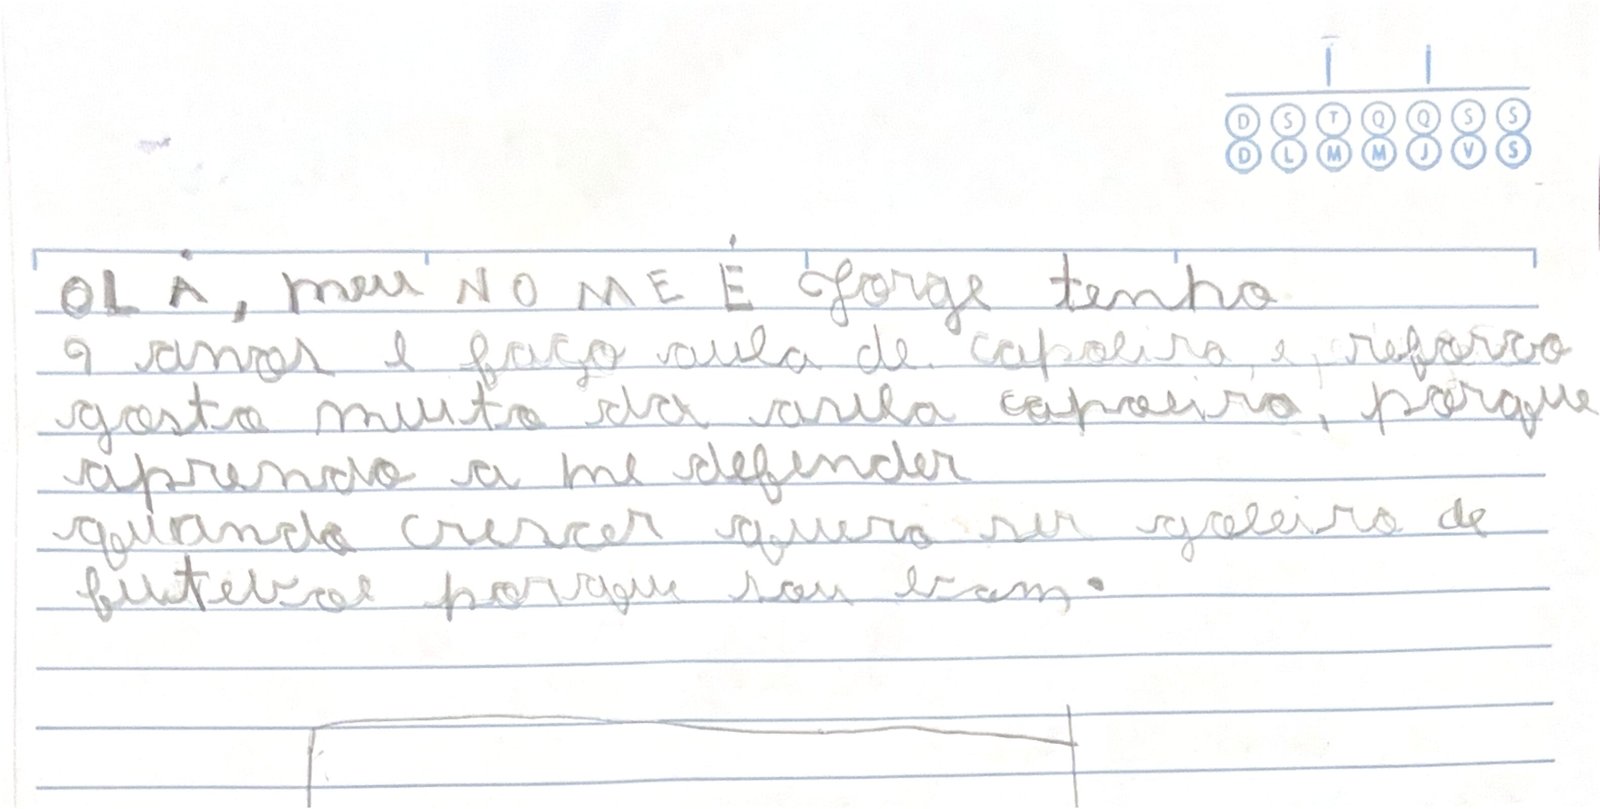 D S T Q Q S S
D L M M J V S
OLÁ, meu NOME É Jorge tenho
9 anos e faço aula de capoeira e, reforço
gosto muito da aula capoeira, porque
aprendo a me defender
quando crescer quero ser goleiro de
futebol porque sou bom.